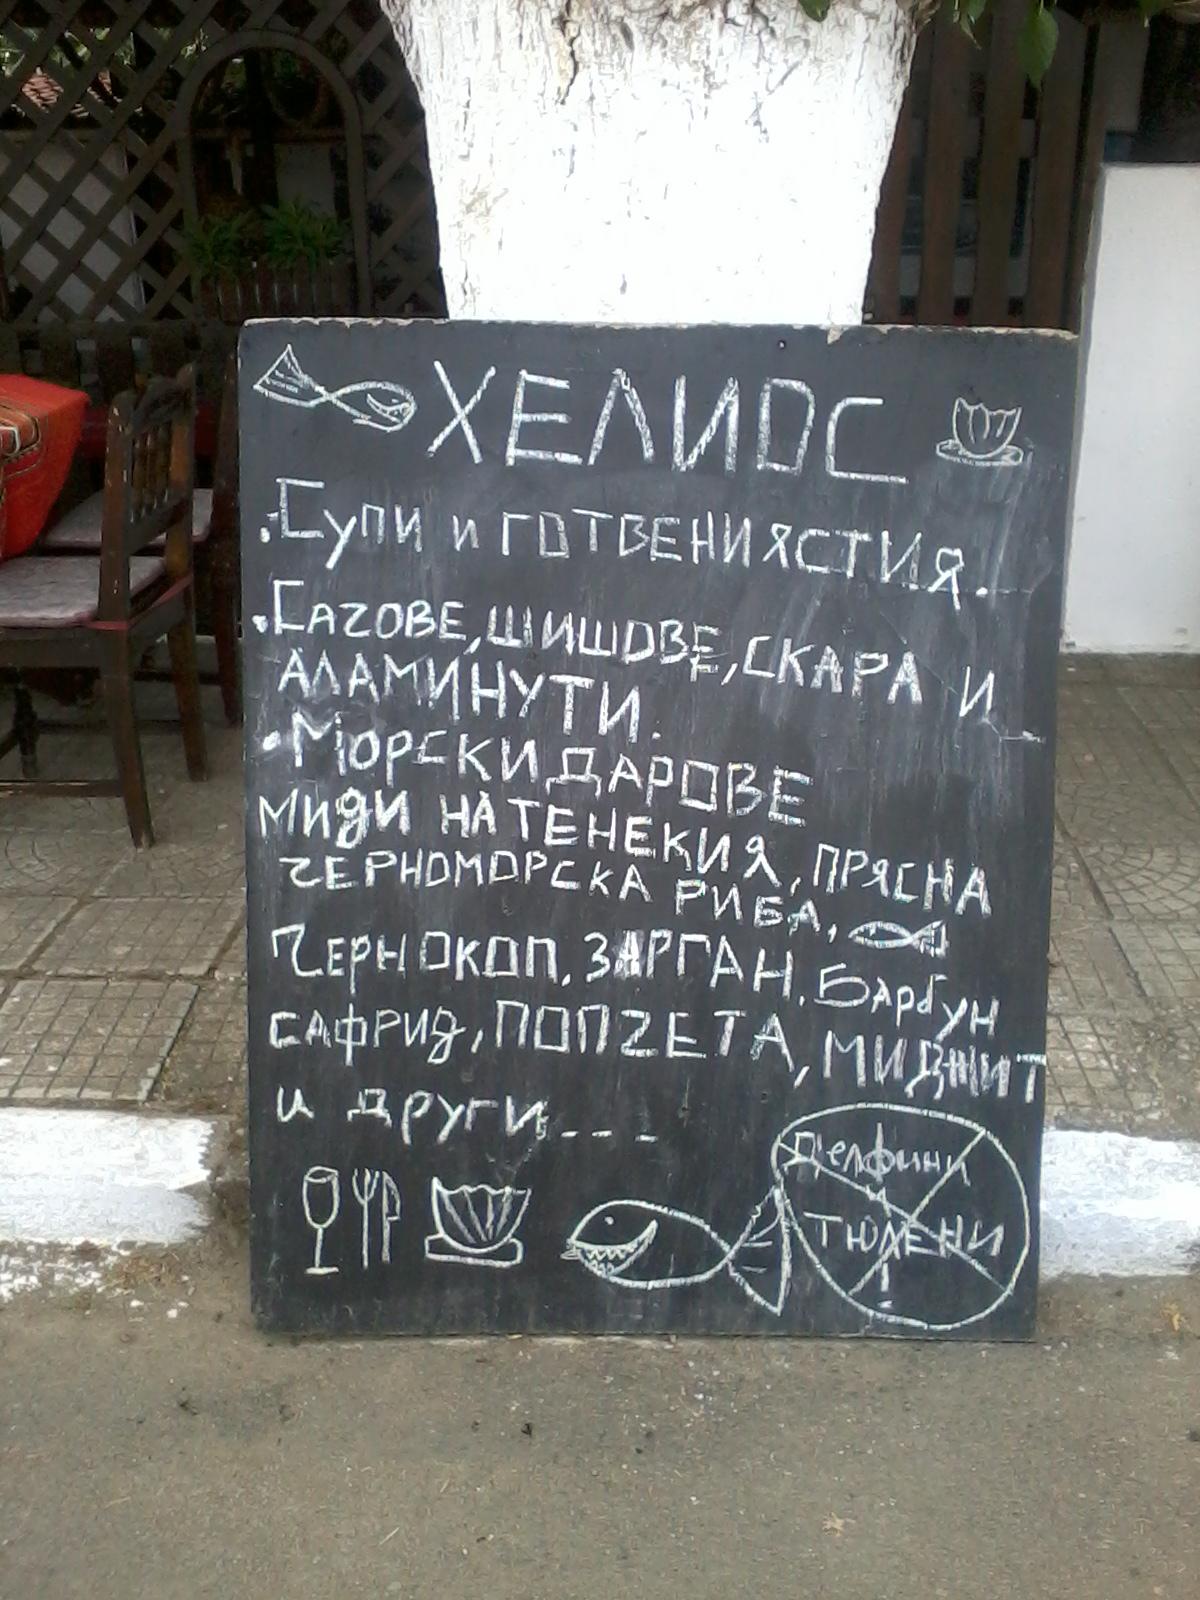 ХЕЛИОС
.Супи и ГОТВЕНИ ЯСТИЯ.
.САЧОВЕ, ШИШОВЕ, СКАРА И
АЛАМИНУТИ.
.МОРСКИ ДАРОВЕ
МИДИ НА ТЕНЕКИЯ, ПРЯСНА
ЧЕРНОМОРСКА РИБА,
ЧЕРНОКОП. ЗАРГАН. Барбун
САФРИД, ПОПЧЕТА, МИДЖИТ
и други...
Делфини
и
ТЮЛЕНИ
!